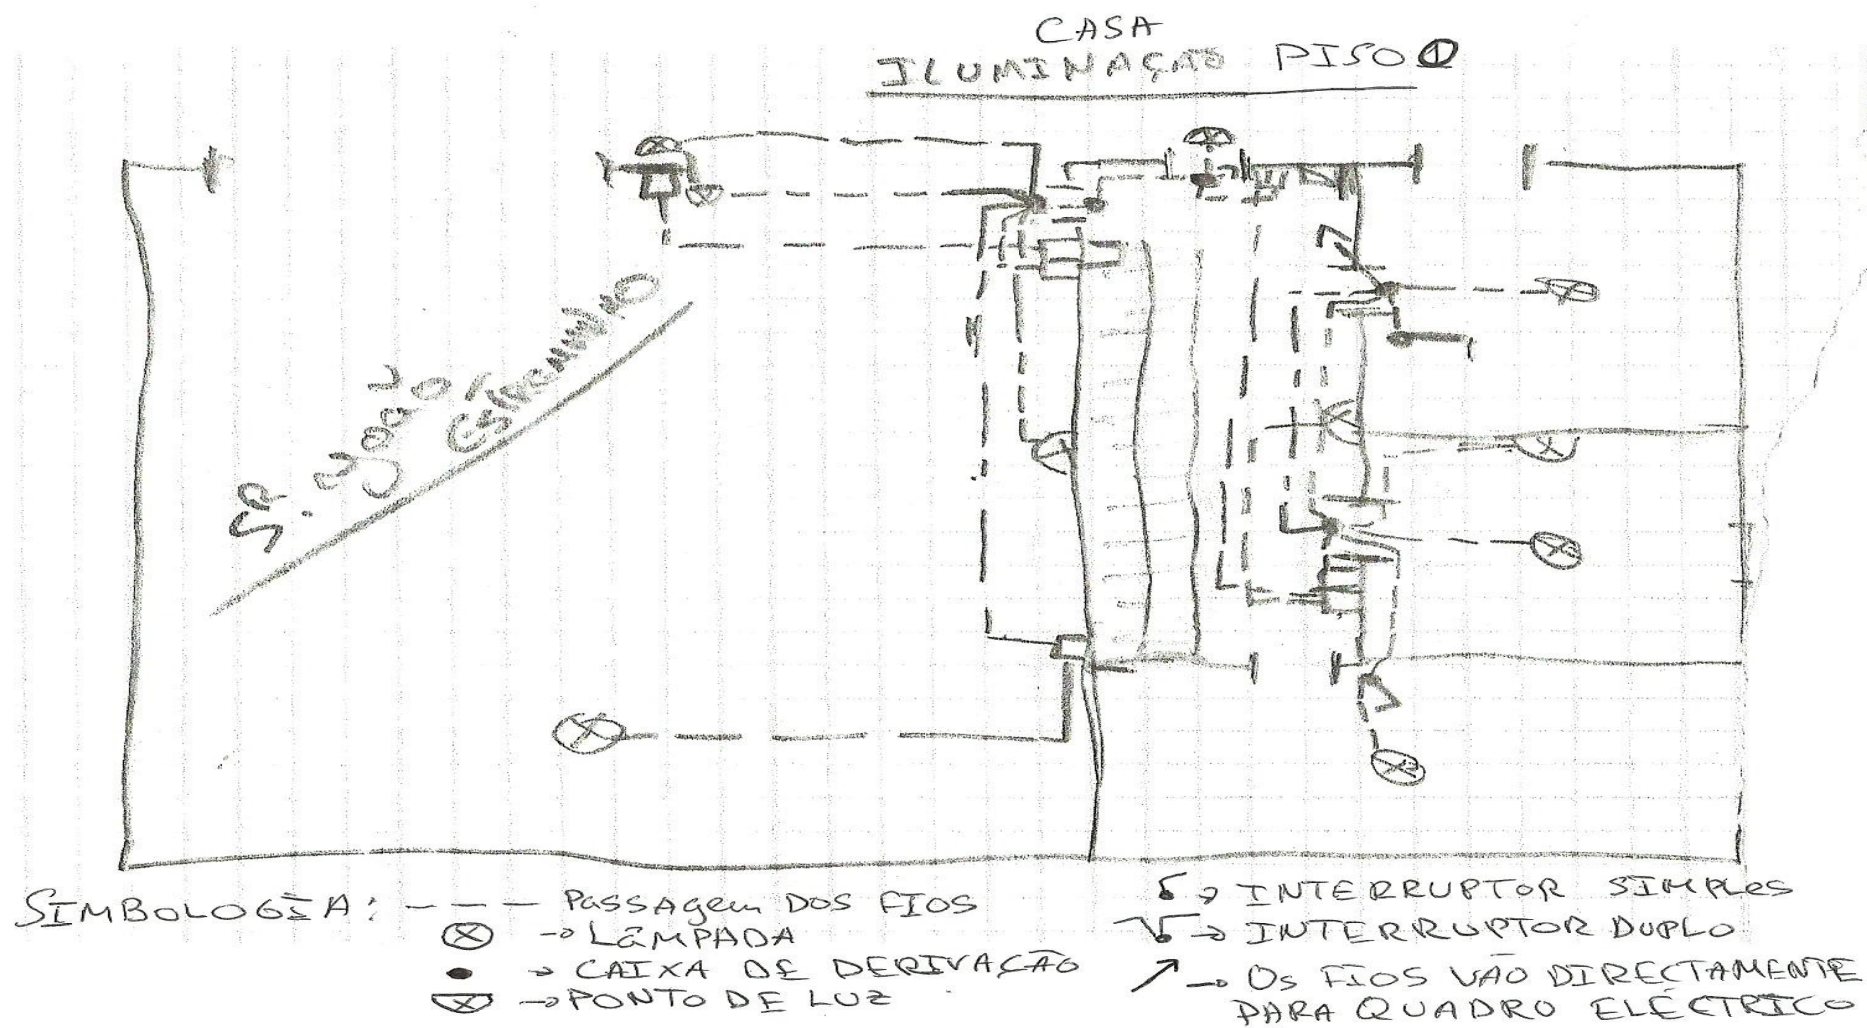 CASA
ILUMINAÇÃO PISO 1
S. JOÃO
SIMBOLOGÍA: --- PASSAgem DOS FIOS
⊗ → LÂMPADA
● → CAIXA DE DERIVAÇÃO
→ PONTO DE LUZ
→ INTERRUPTOR SIMPLES
→ INTERRUPTOR DUPLO
↗ → OS FIOS VÃO DIRECTAMENTE
PARA QUADRO ELÉCTRICO